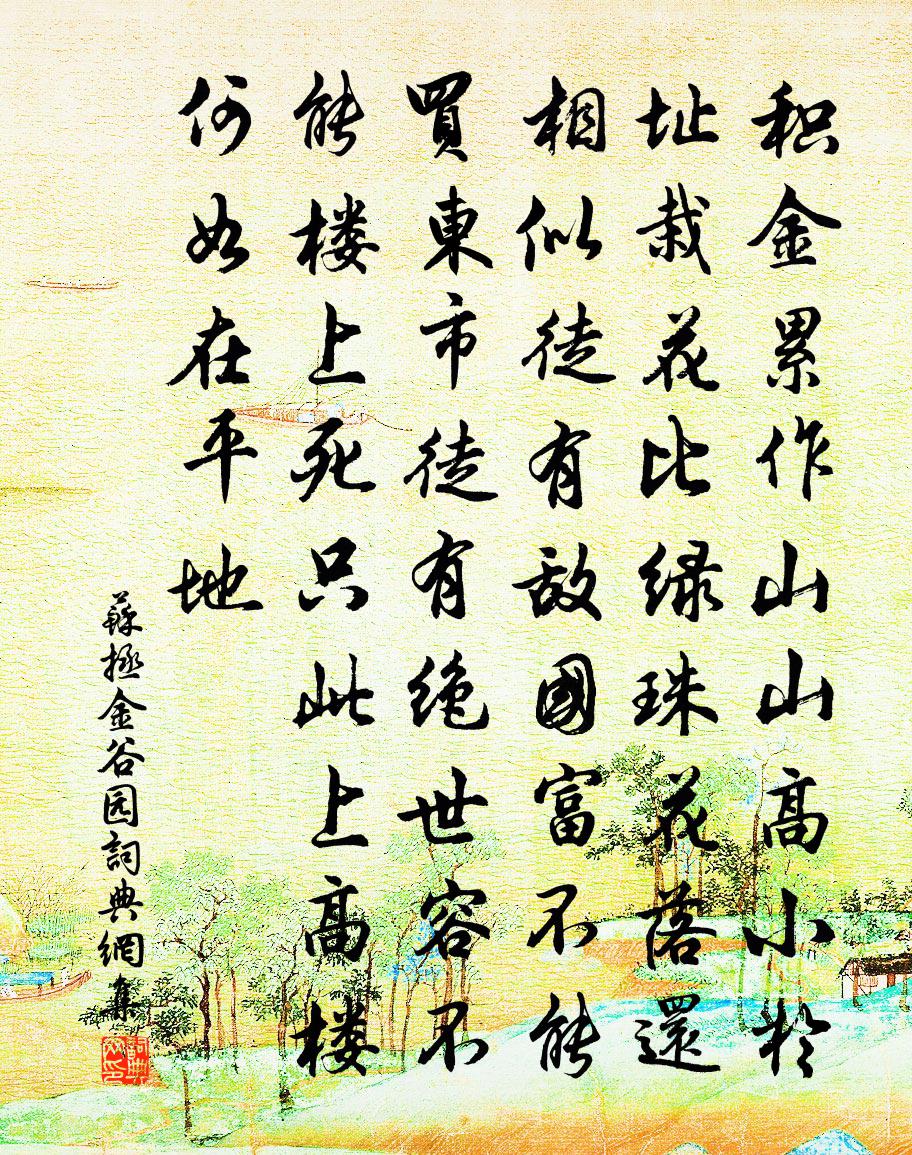 积金累作山山髙小於
址栽花比绿珠花落還
相似徒有敌國富不能
買東市徒有绝世容不
能楼上死只此上髙楼
何如在平地
蘇拯金谷园詞典網集